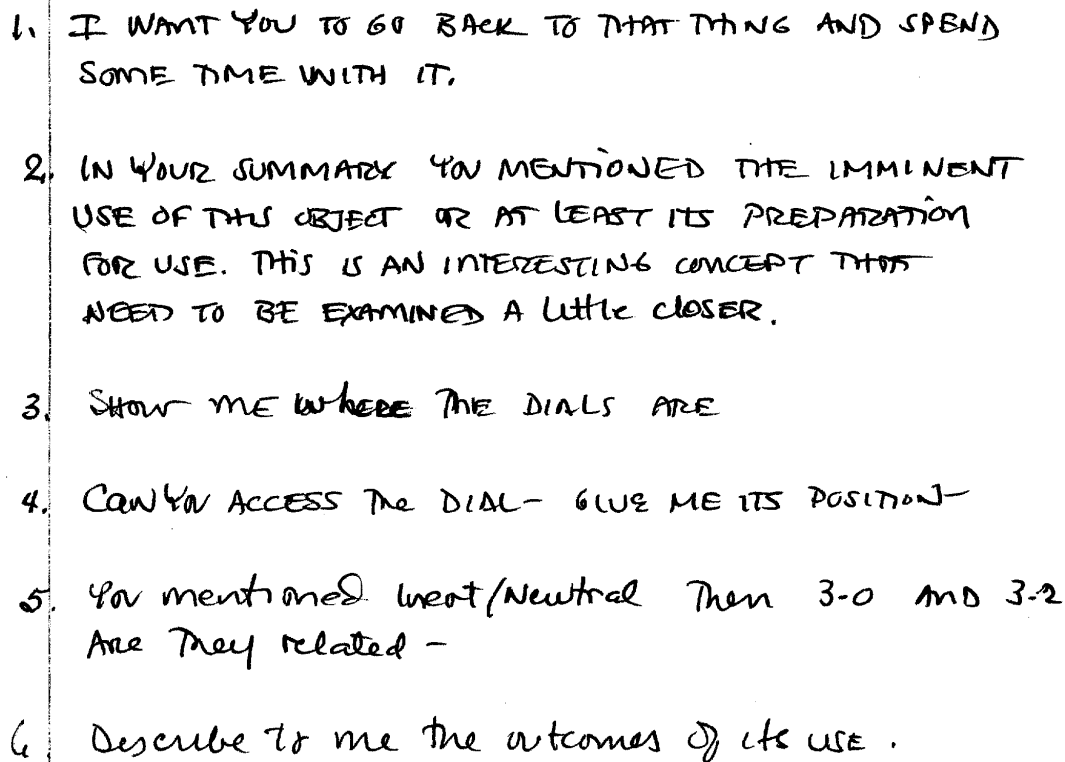 1. I WANT YOU TO GO BACK TO THAT THING AND SPEND
SOME TIME WITH IT.
2. IN YOUR SUMMARY YOU MENTIONED THE IMMINENT
USE OF THIS OBJECT OR AT LEAST ITS PREPARATION
FOR USE. THIS IS AN INTERESTING CONCEPT THAT
NEED TO BE EXAMINED A little closER.
3. SHOW ME WHERE THE DIALS ARE
4. CAN YOU ACCESS The DIAL - GIVE ME ITS POSITION -
5. You mentioned Inert/Neutral Then 3-0 AND 3-2
Are They related -
6. Describe to me the outcomes of its USE.